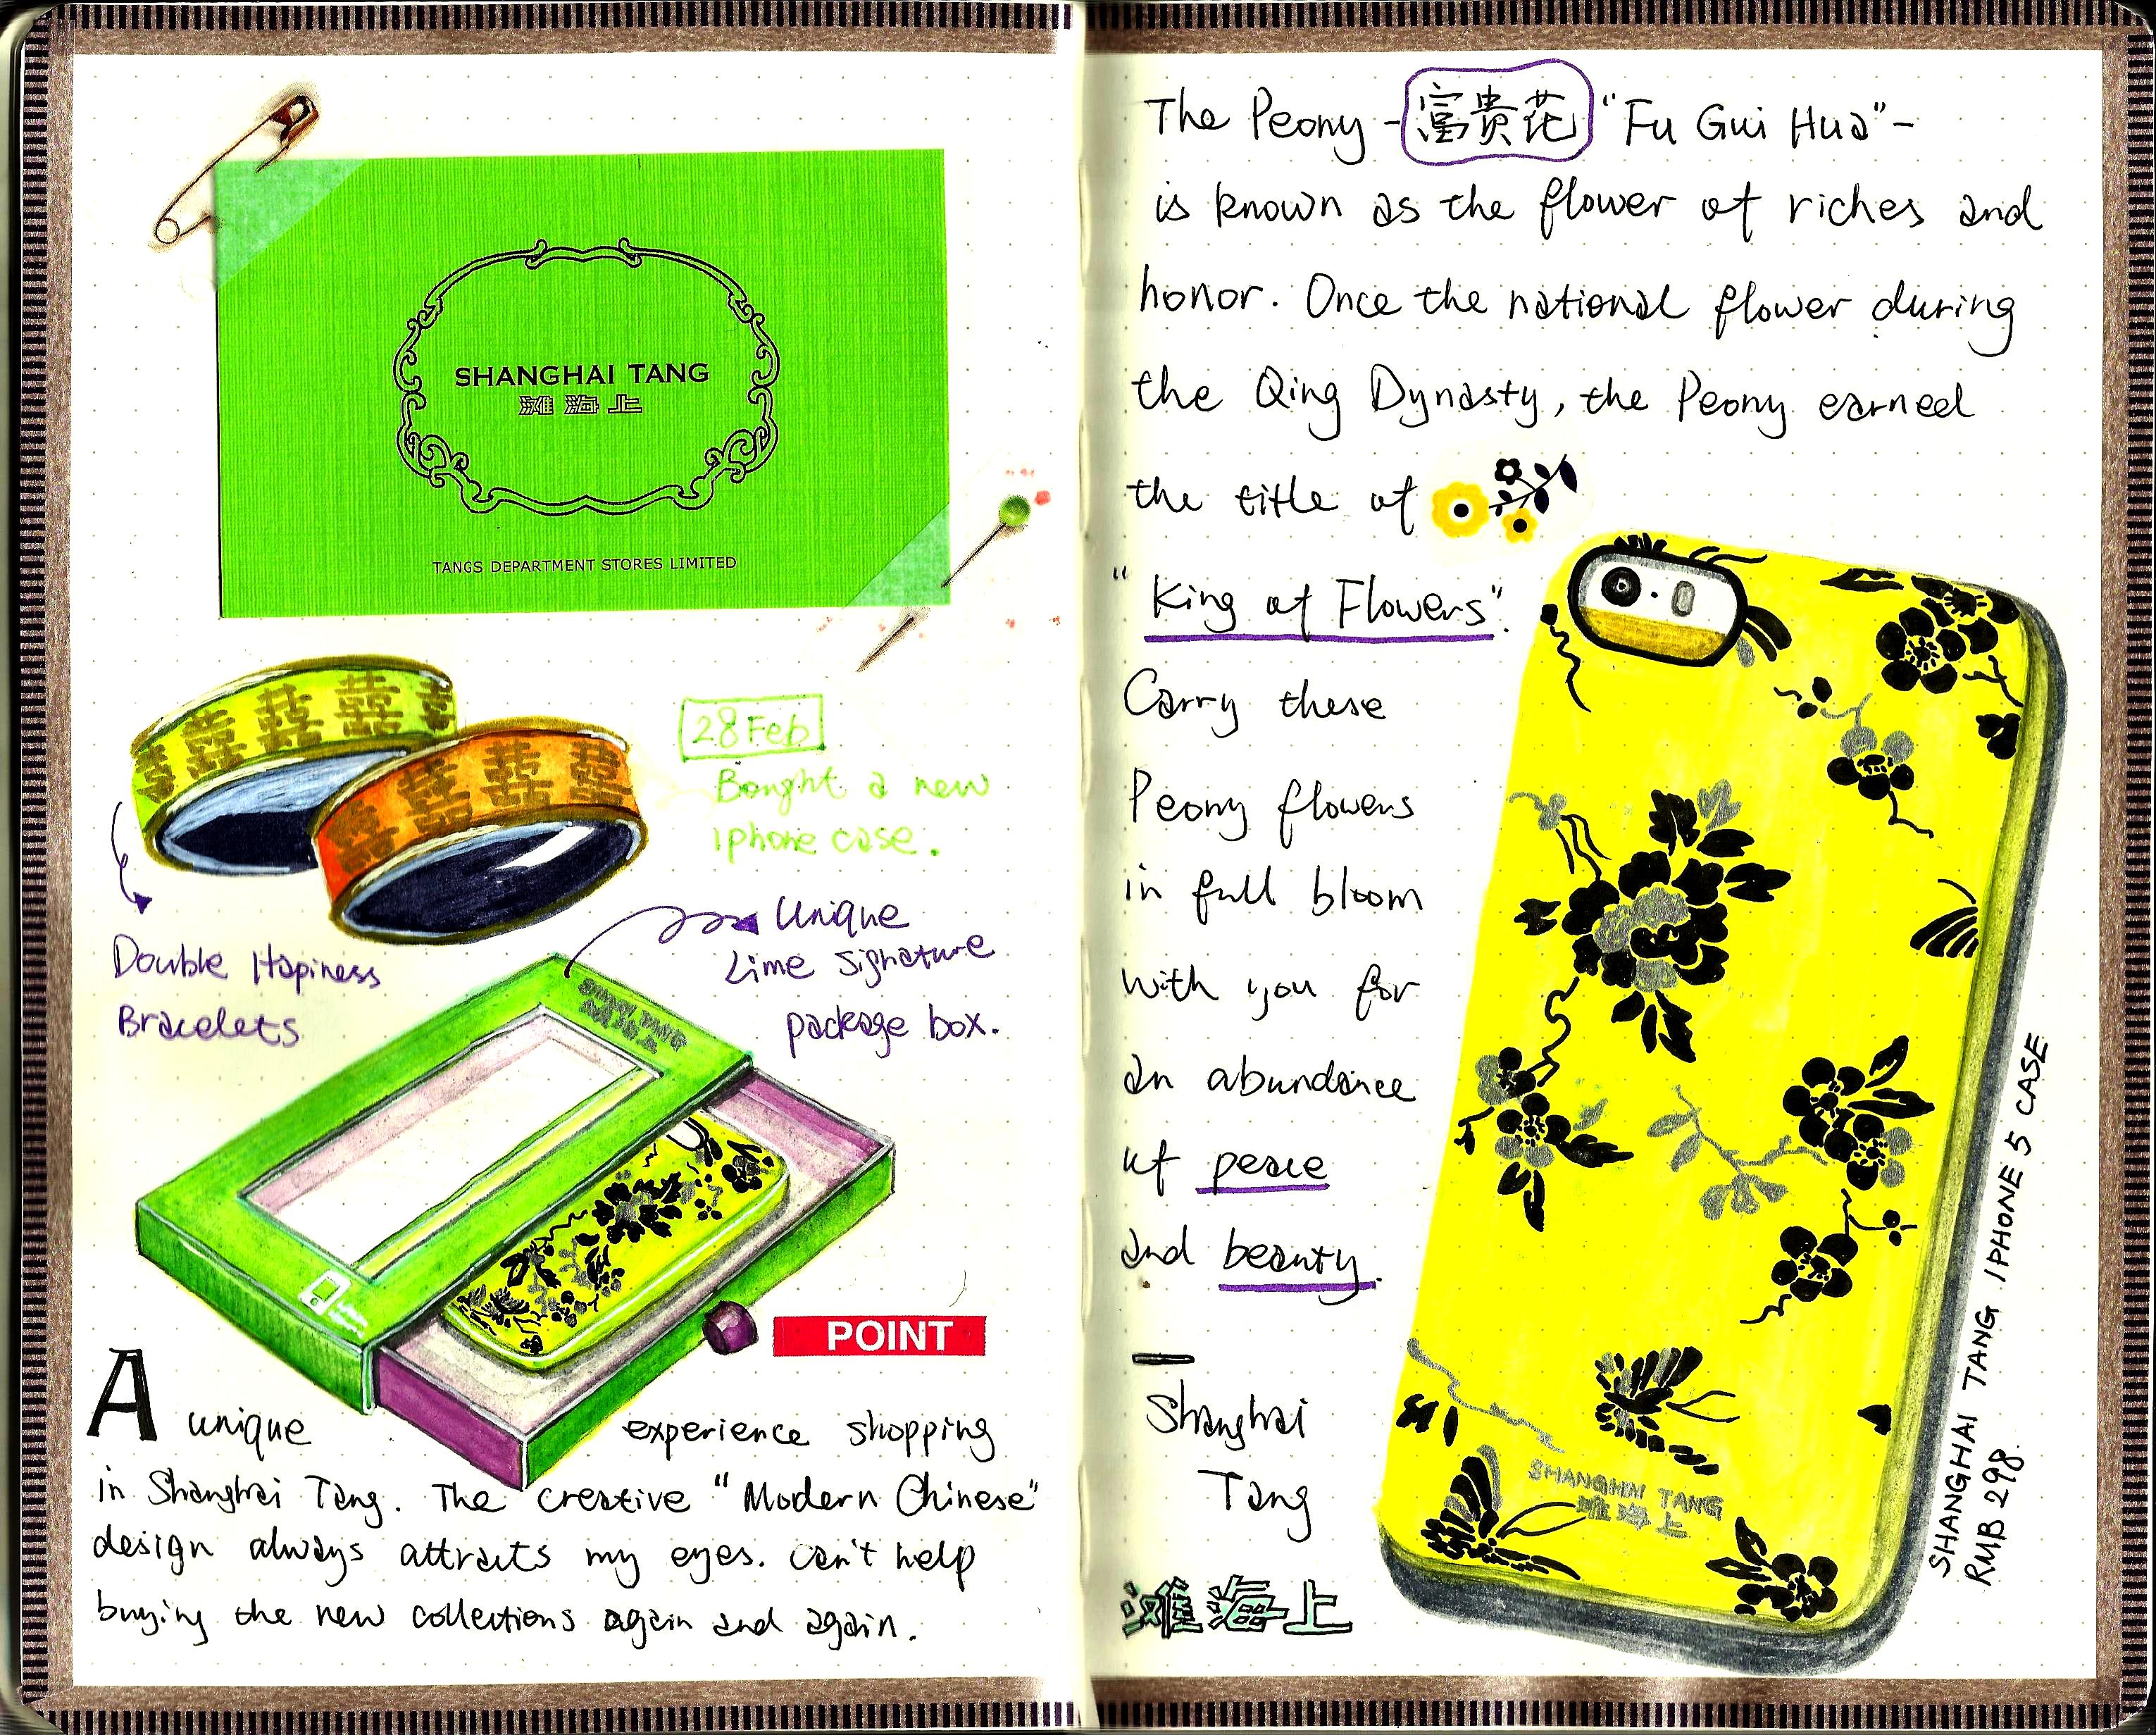 SHANGHAI TANG
灘海上
TANGS DEPARTMENT STORES LIMITED
28 Feb
Bought a new
iphone case.
Double Hapiness
Bracelets
Unique
Lime signature
package box.
SHANGHAI TANG
POINT
A unique experience shopping
in Shanghai Tang. The creative "Modern Chinese"
design always attracts my eyes. Can't help
buying the new collections again and again.
The Peony - 富贵花 "Fu Gui Hua" -
is known as the flower of riches and
honor. Once the national flower during
the Qing Dynasty, the Peony earned
the title of
"King of Flowers".
Carry these
Peony flowers
in full bloom
with you for
an abundance
of peace
and beauty.
—
Shanghai
Tang
灘海上
SHANGHAI TANG
灘海上
SHANGHAI TANG IPHONE 5 CASE
RMB 298